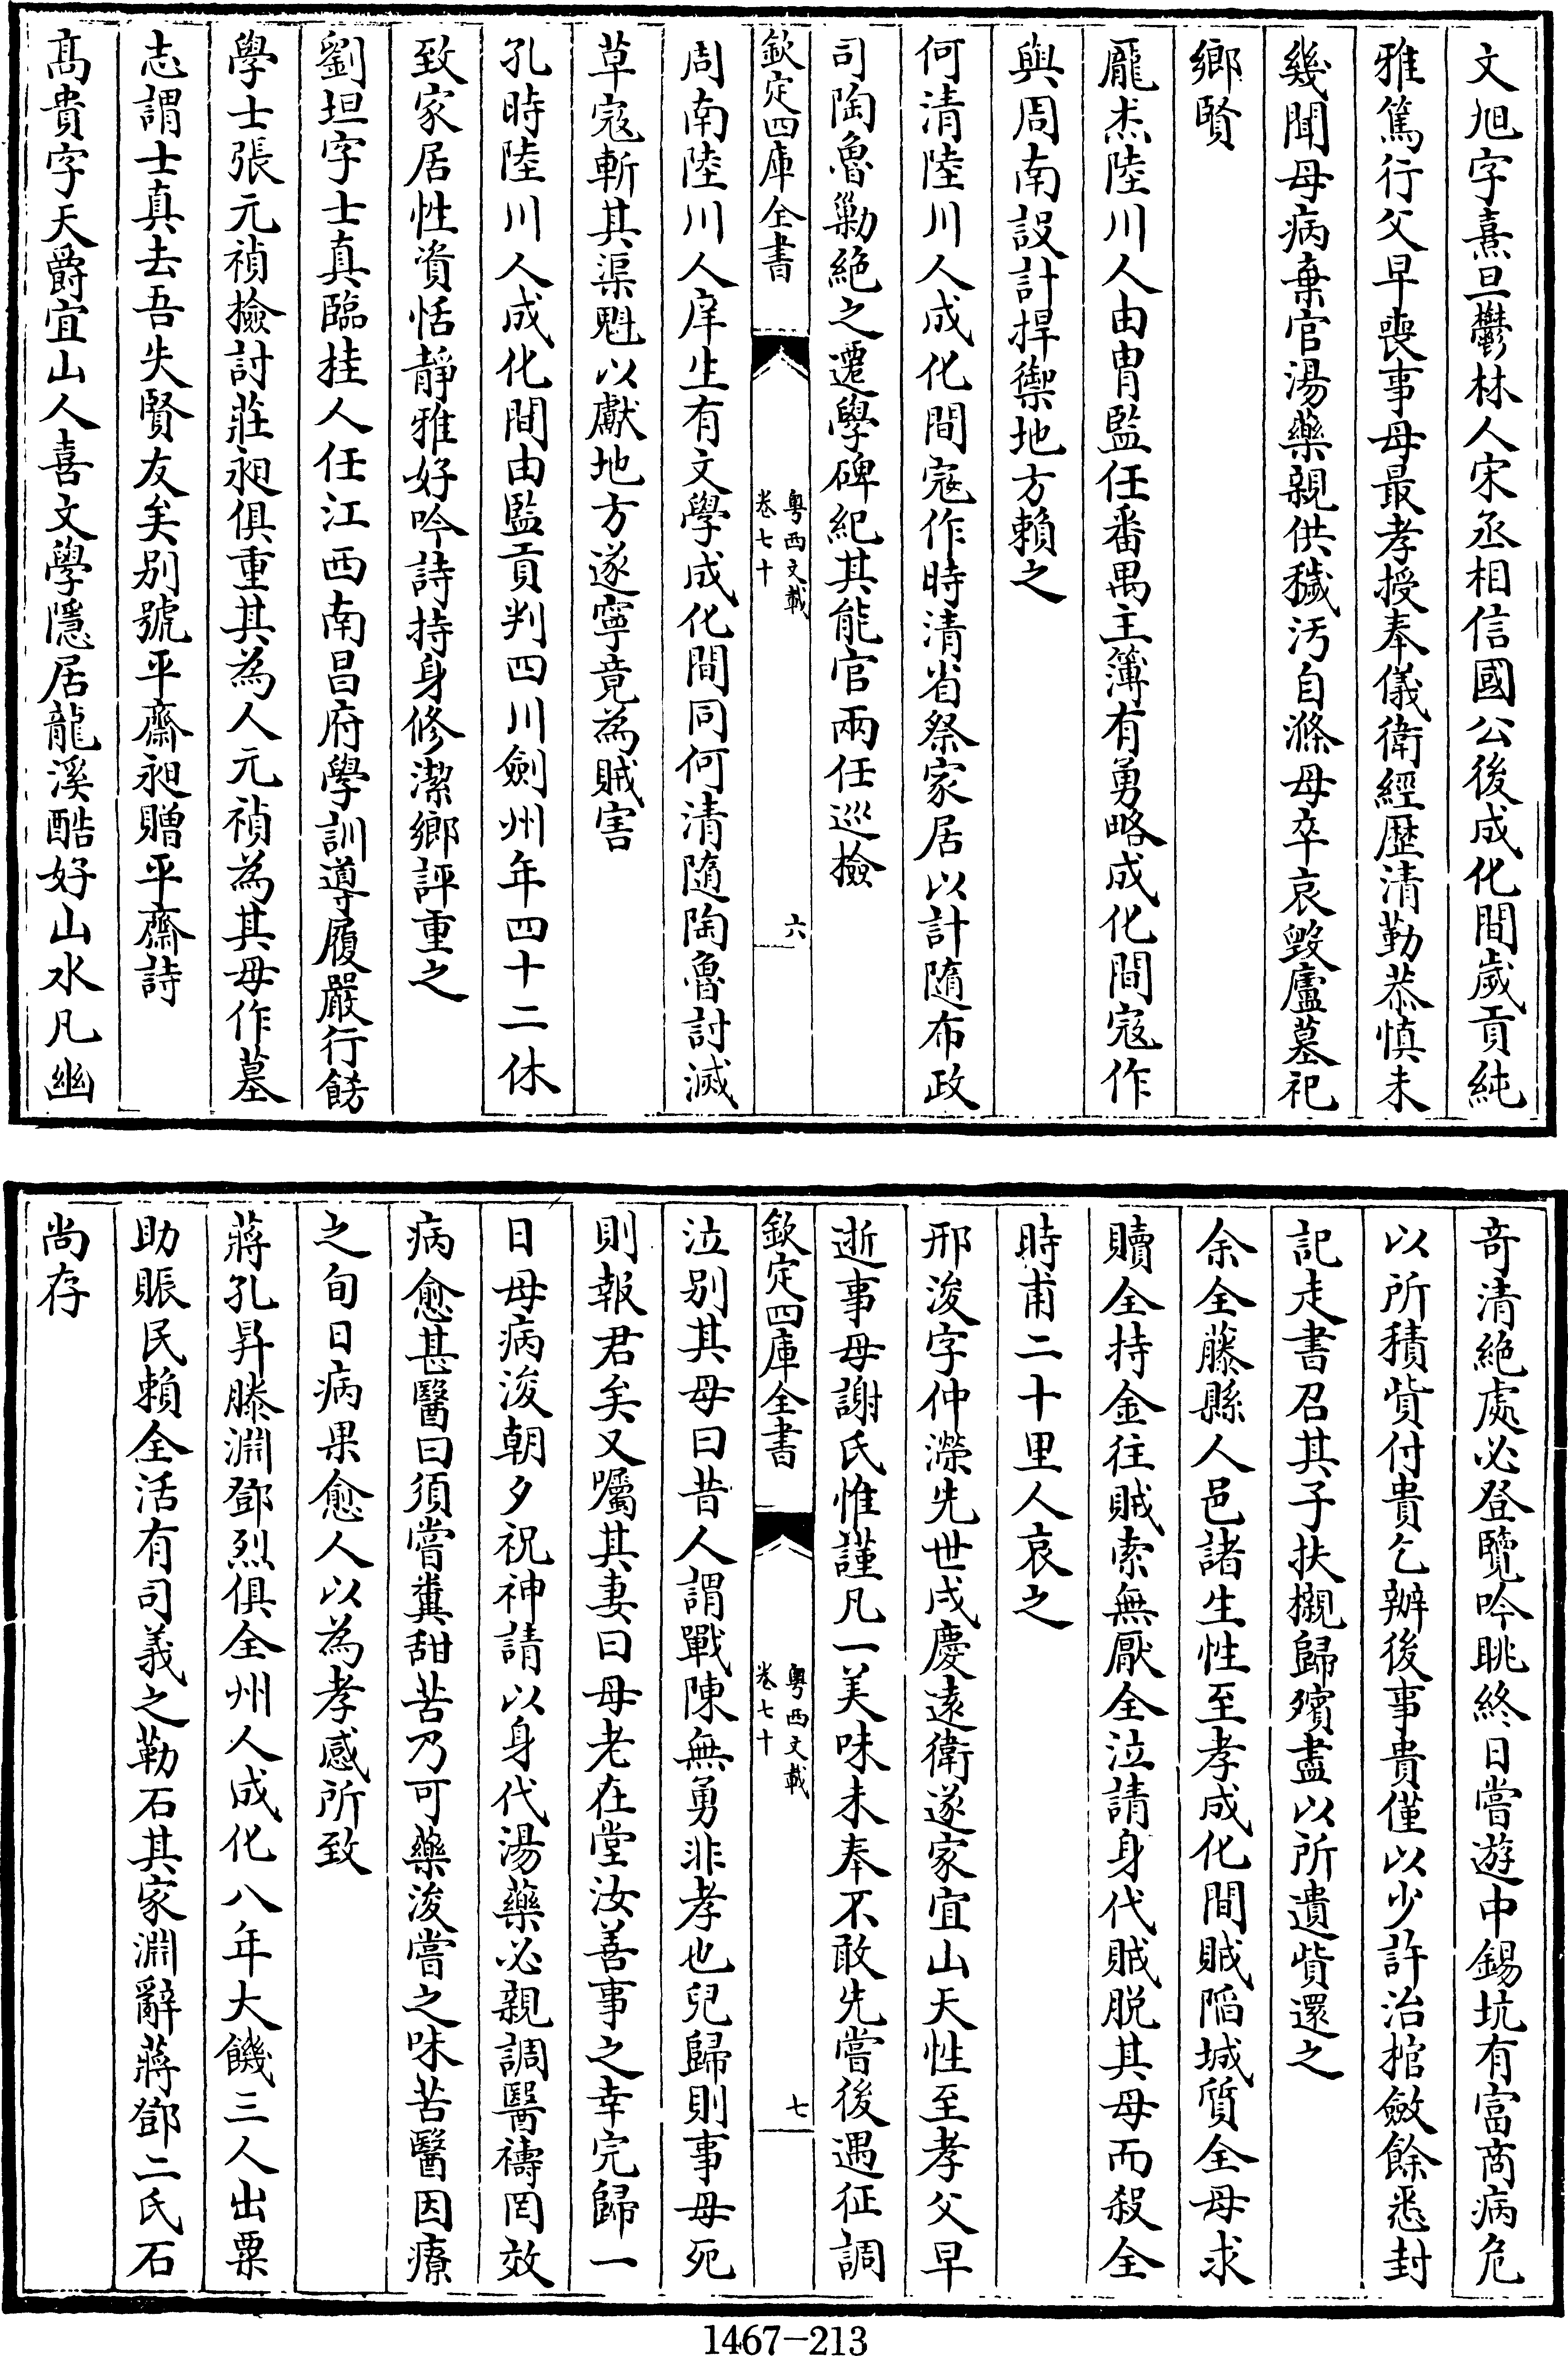 文旭字熹旦鬱林人宋丞相信國公後成化間歲貢純
雅篤行父早喪事母最孝授奉儀衛經歴清勤恭慎未
幾聞母病棄官湯藥親供穢汚自滌母卒哀毀廬墓祀
鄉賢
龎杰陸川人由冑監任番禺主簿有勇略成化間寇作
與周南設計捍禦地方賴之
何清陸川人成化間寇作時清省祭家居以計隨布政
司陶魯勦絶之遷學碑紀其能官兩任巡檢
欽定四庫全書
粤西文載
卷七十
六
周南陸川人庠生有文學成化間同何清隨陶魯討滅
草寇斬其渠魁以獻地方遂寧竟為賊害
孔時陸川人成化間由監貢判四川劍州年四十二休
致家居性資恬靜雅好吟詩持身修潔鄉評重之
劉坦字士真臨桂人任江西南昌府學訓導履嚴行餝
學士張元禎檢討莊昶俱重其為人元禎為其母作墓
志謂士真去吾失賢友矣别號平齋昶贈平齋詩
髙貴字天爵宜山人喜文學隱居龍溪酷好山水凡幽
奇清絶處必登覽吟眺終日嘗遊中錫坑有富商病危
以所積貲付貴乞辦後事貴僅以少許治棺斂餘悉封
記走書召其子扶櫬歸殯盡以所遺貲還之
余全藤縣人邑諸生性至孝成化間賊陷城質全母求
贖全持金往賊索無厭全泣請身代賊脱其母而殺全
時甫二十里人哀之
邢浚字仲濚先世戍慶遠衛遂家宜山天性至孝父早
逝事母謝氏惟謹凡一美味未奉不敢先嘗後遇征調
欽定四庫全書
粤西文載
卷七十
七
泣别其母曰昔人謂戰陳無勇非孝也兒歸則事母死
則報君矣又囑其妻曰母老在堂汝善事之幸完歸一
日母病浚朝夕祝神請以身代湯藥必親調醫禱罔效
病愈甚醫曰須嘗糞甜苦乃可藥浚嘗之味苦醫因療
之旬日病果愈人以為孝感所致
蔣孔昇滕淵鄧烈俱全州人成化八年大饑三人出粟
助賑民賴全活有司義之勒石其家淵辭蔣鄧二氏石
尚存
1467-213